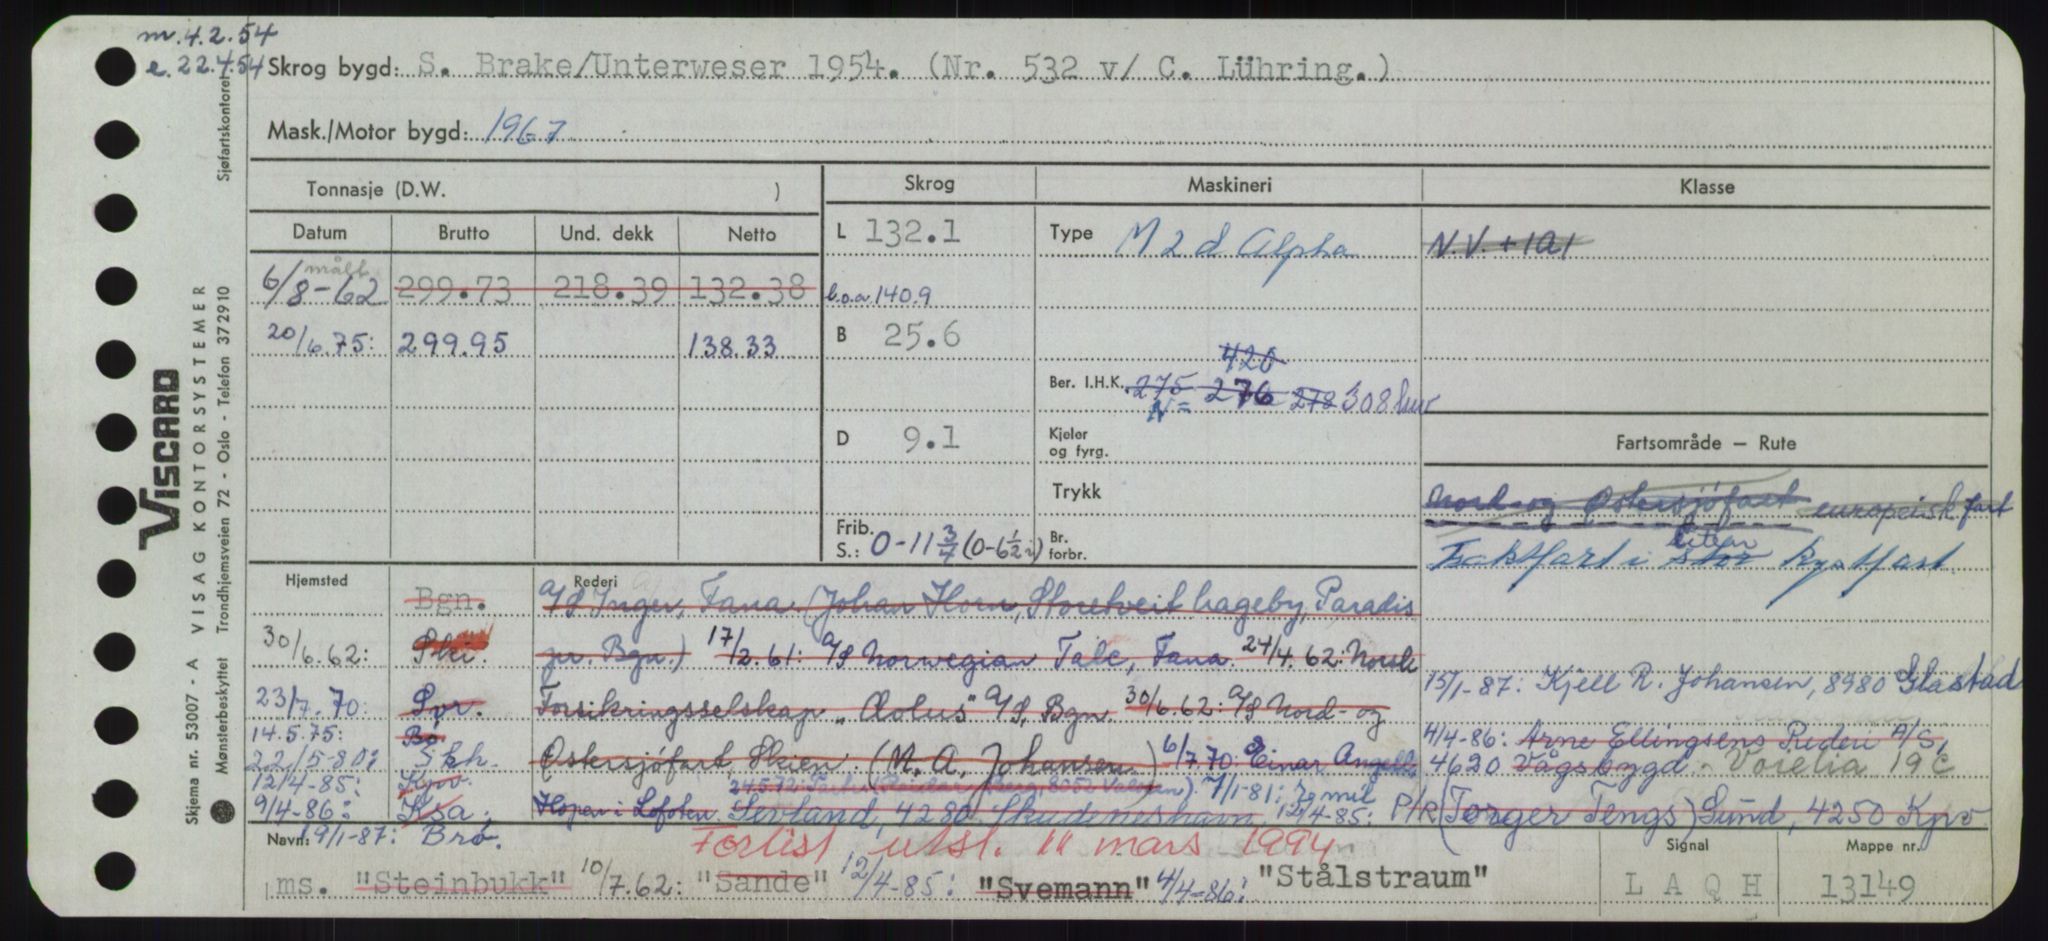 m. 4.2.54
e. 22.4.54
Skrog bygd: S. Brake/Unterweser 1954. (Nr. 532 v/ C. Lühring.)
Mask./Motor bygd: 1967
Tonnasje (D.W. )
Skrog
Maskineri
Klasse
Datum Brutto Und. dekk Netto
L 132.1
Type M 2 d Alpha
N.V. +1A1
målt
6/8-62 299.73 218.39 132.38
l.o.a. 140.9
20/6.75: 299.95 138.33
B 25.6
420
Ber. I.H.K. 275 276 278 308 hur
N=
D 9.1
Kjeler
og fyrg.
Fartsområde – Rute
Trykk
Nord-og Østersjøfart europeisk fart
Frib.
S.: 0-11 3/4 (0-6 1/2 i)
Br.
forbr.
liten
Fraktfart i stor kystfart.
Hjemsted
Rederi
Bgn. A/S Inger, Fana. (Johan Horn, Storetveit hageby, Paradis
30/6.62: Ski. pr. Bgn.) 17/2.61: A/S Norwegian Talc, Fana. 24/4.62: Norsk
15/1-87: Kjell R. Johansen, 8980 Glastad
23/7.70: Svr. Forsikringsselskap "Æolus" A/S, Bgn. 30/6.62: A/S Nord- og
14.5.75: Bø
4/4-86: Arne Ellingsens Rederi A/S,
22/5-80: Skh. Østersjøfart, Skien. (M. A. Johansen) 6/7.70: Einar Angell,
4620 Vågsbygd - Vorelia 19C
12/4-85: Kpv.
24.5.72: 7/1-81: Romil
9/4-86: Ksa. Hopen i Lofoten. Sevland, 4280 Skudeneshavn. 12/4-85: P/R (Torger Tengs) Sund, 4250 Kpv
Navn: 19/1-87: Brø.
Forlist utsl. 11 mars 1994
Signal
Mappe nr.
ms. "Steinbukk" 10/7.62: "Sande" 12/4-85: "Svemann" 4/4-86: "Stålstraum"
L A Q H
13149
Sjøfartskontoret
VISCARD
Skjema nr. 53007 - A VISAG KONTORSYSTEMER
Mønsterbeskyttet Trondhjemsveien 72 - Oslo - Telefon 37 29 10